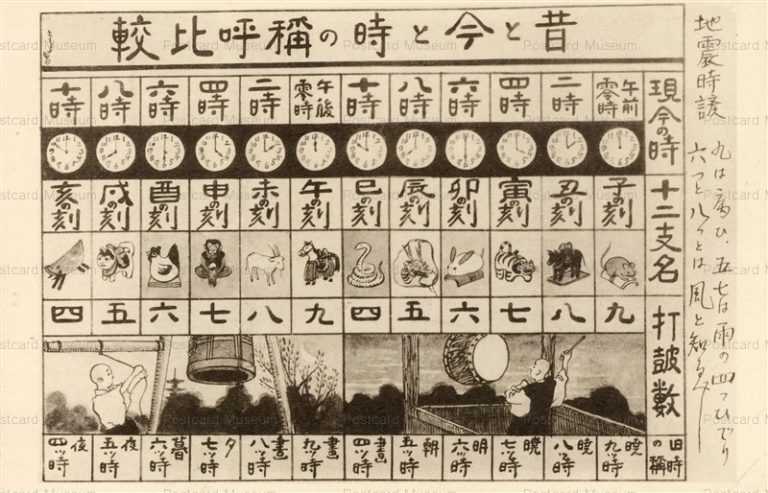 昔と今と時の稱呼比較
現今の時 午前零時 二時 四時 六時 八時 十時 午後零時 二時 四時 六時 八時 十時
十二支名 子の刻 丑の刻 寅の刻 卯の刻 辰の刻 巳の刻 午の刻 未の刻 申の刻 酉の刻 戌の刻 亥の刻
打鼓數 九 八 七 六 五 四 九 八 七 六 五 四
旧時の稱 暁九ツ時 暁八ツ時 暁七ツ時 明六ツ時 朝五ツ時 晝四ツ時 晝九ツ時 晝八ツ時 夕七ツ時 暮六ツ時 夜五ツ時 夜四ツ時
地震時諺
九は病ひ、五七は雨の四つひでり
六つと八つとは風と知るべし
Postcard Museum